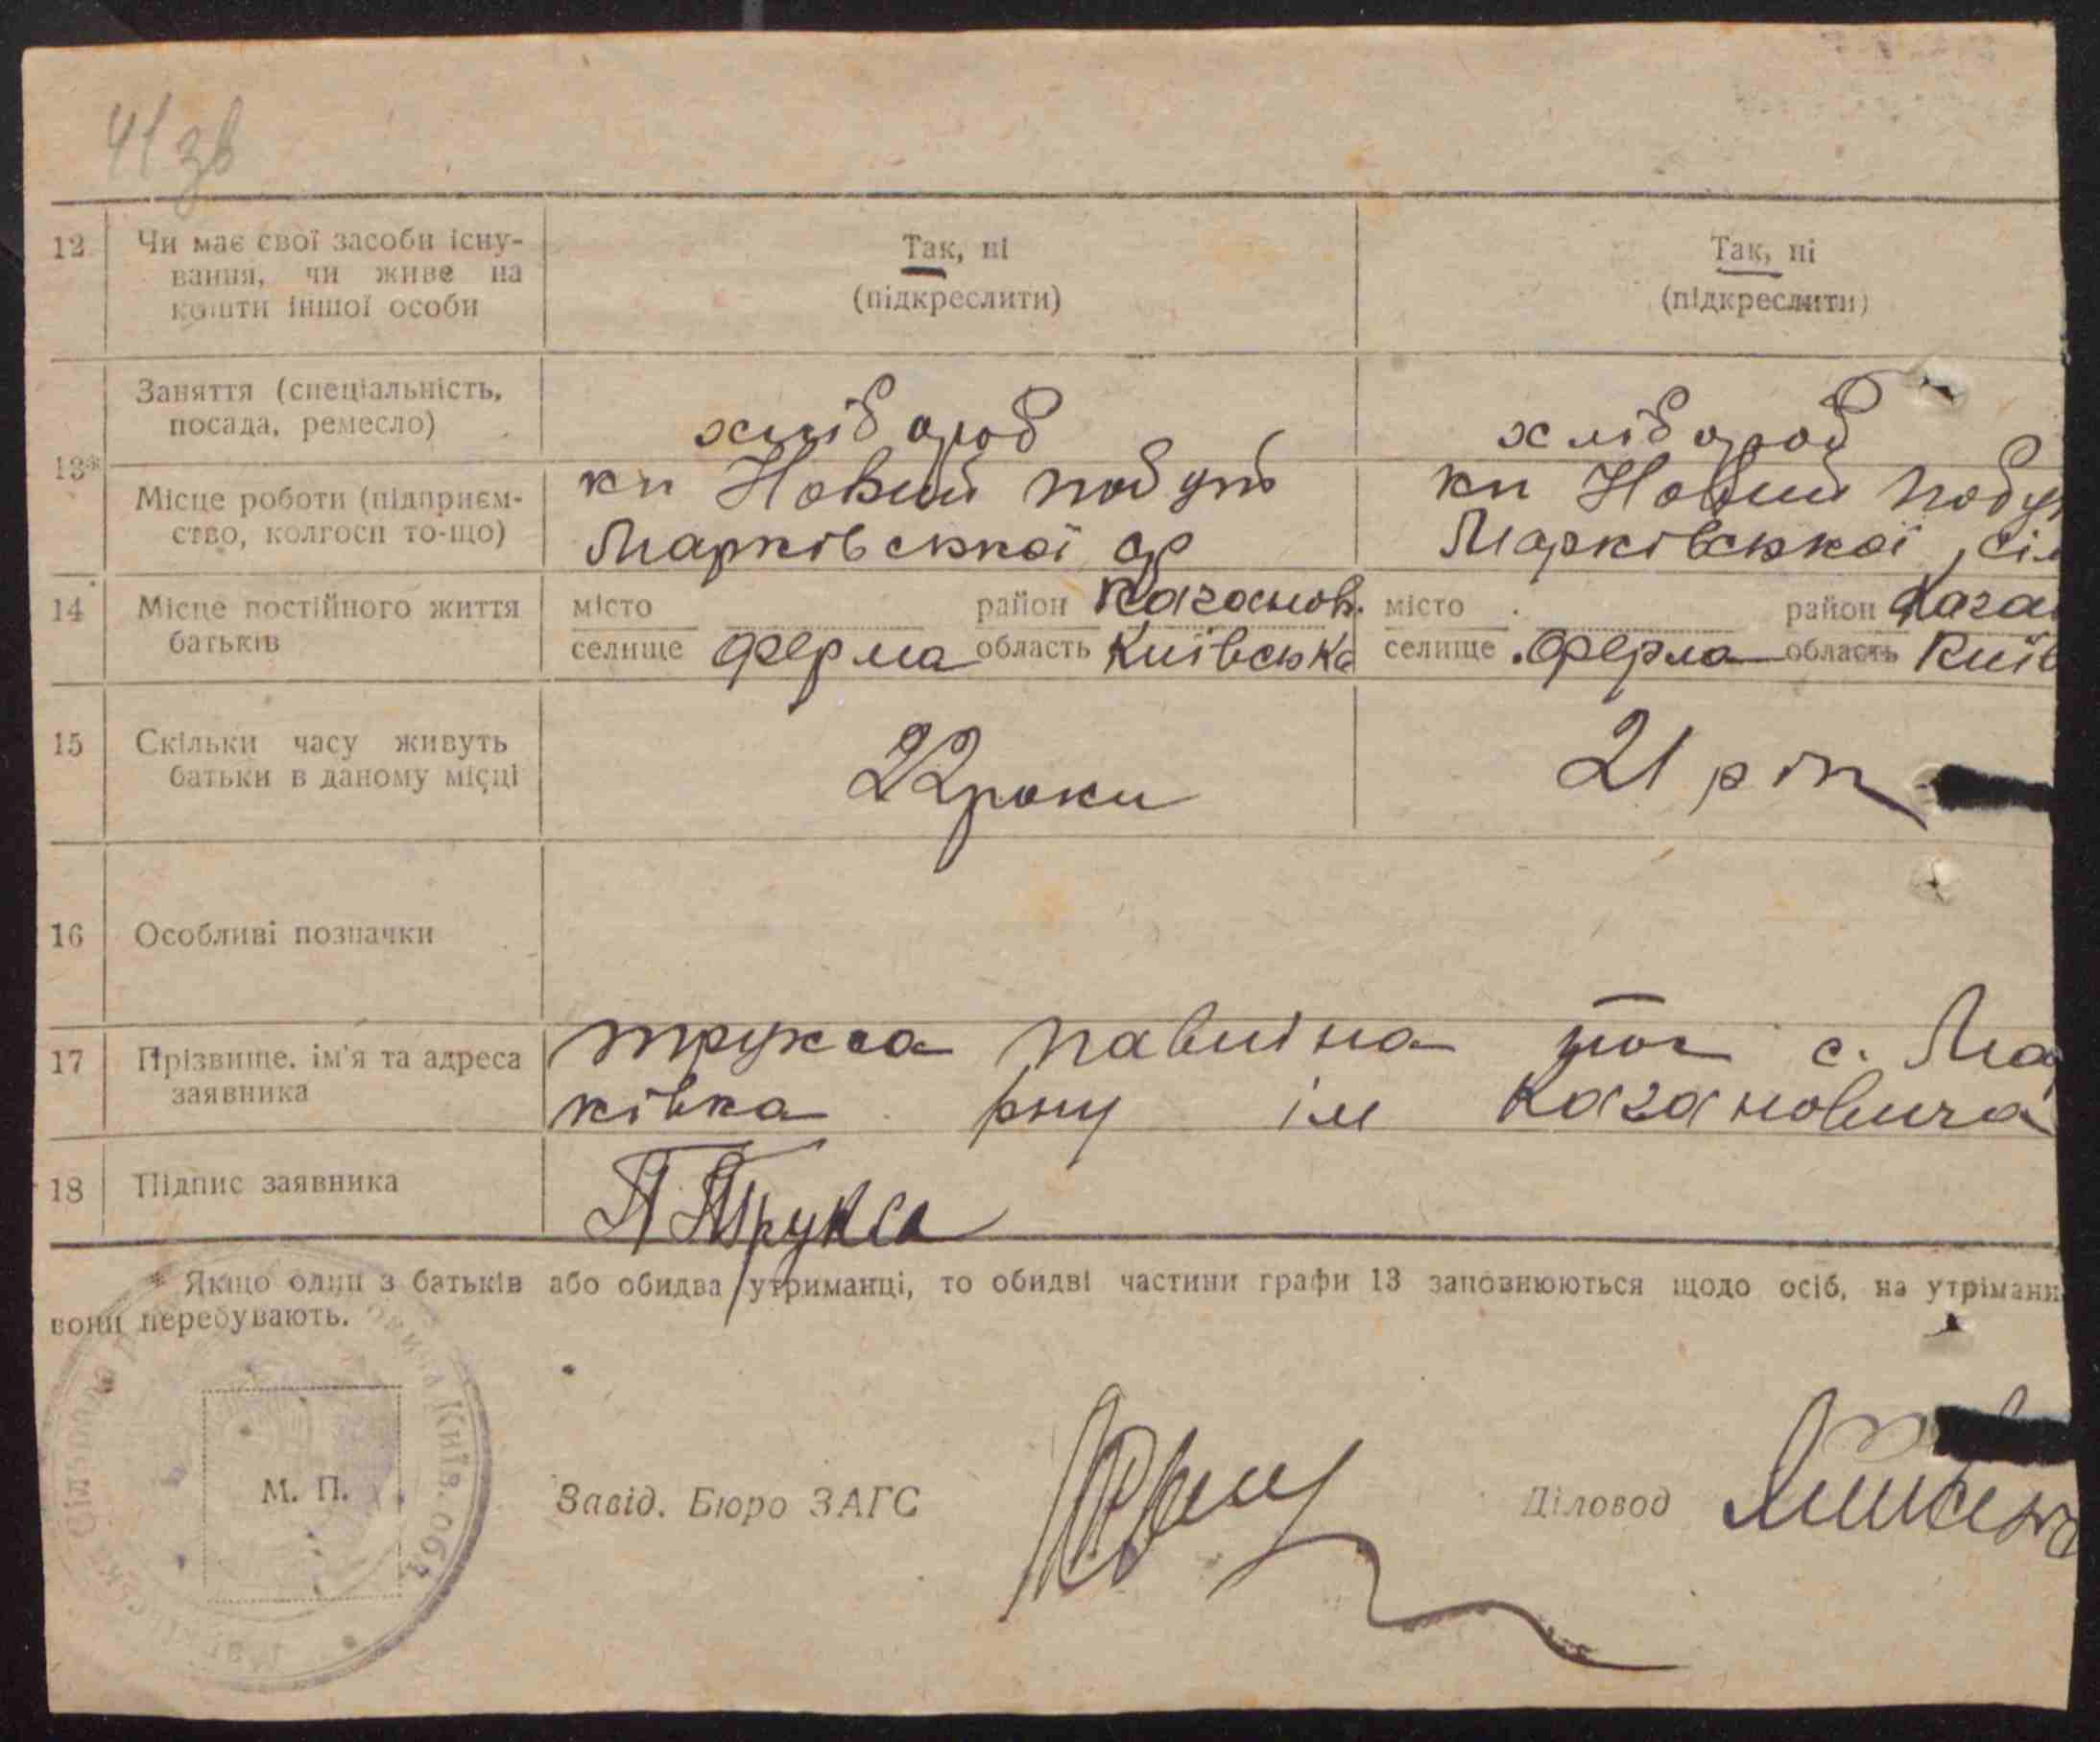 41 зв
12 Чи має свої засоби існу- Так, ні Так, ні
вання, чи живе на (підкреслити) (підкреслити)
кошти іншої особи
Заняття (спеціальність, хлібороб хлібороб
посада, ремесло)
13*
Місце роботи (підприєм- кп Новий побут кп Новий побу
ство, колгосп то-що) Марківської ср Марківської сіл
14 Місце постійного життя місто район Каганов. місто район Кага
батьків селище Ферма область Київська селище Ферма область Київ
15 Скільки часу живуть 22 роки 21 рік
батьки в даному місці
16 Особливі позначки
17 Прізвище, ім'я та адреса Трукса Павліна с. Ма
заявника ківка рну ім Кагановича
18 Підпис заявника П Трукса
* Якщо один з батьків або обидва утриманці, то обидві частини графи 13 заповнюються щодо осіб, на утріманн
вони перебувають.
Київ. Обл
М. П. Завід. Бюро ЗАГС Діловод